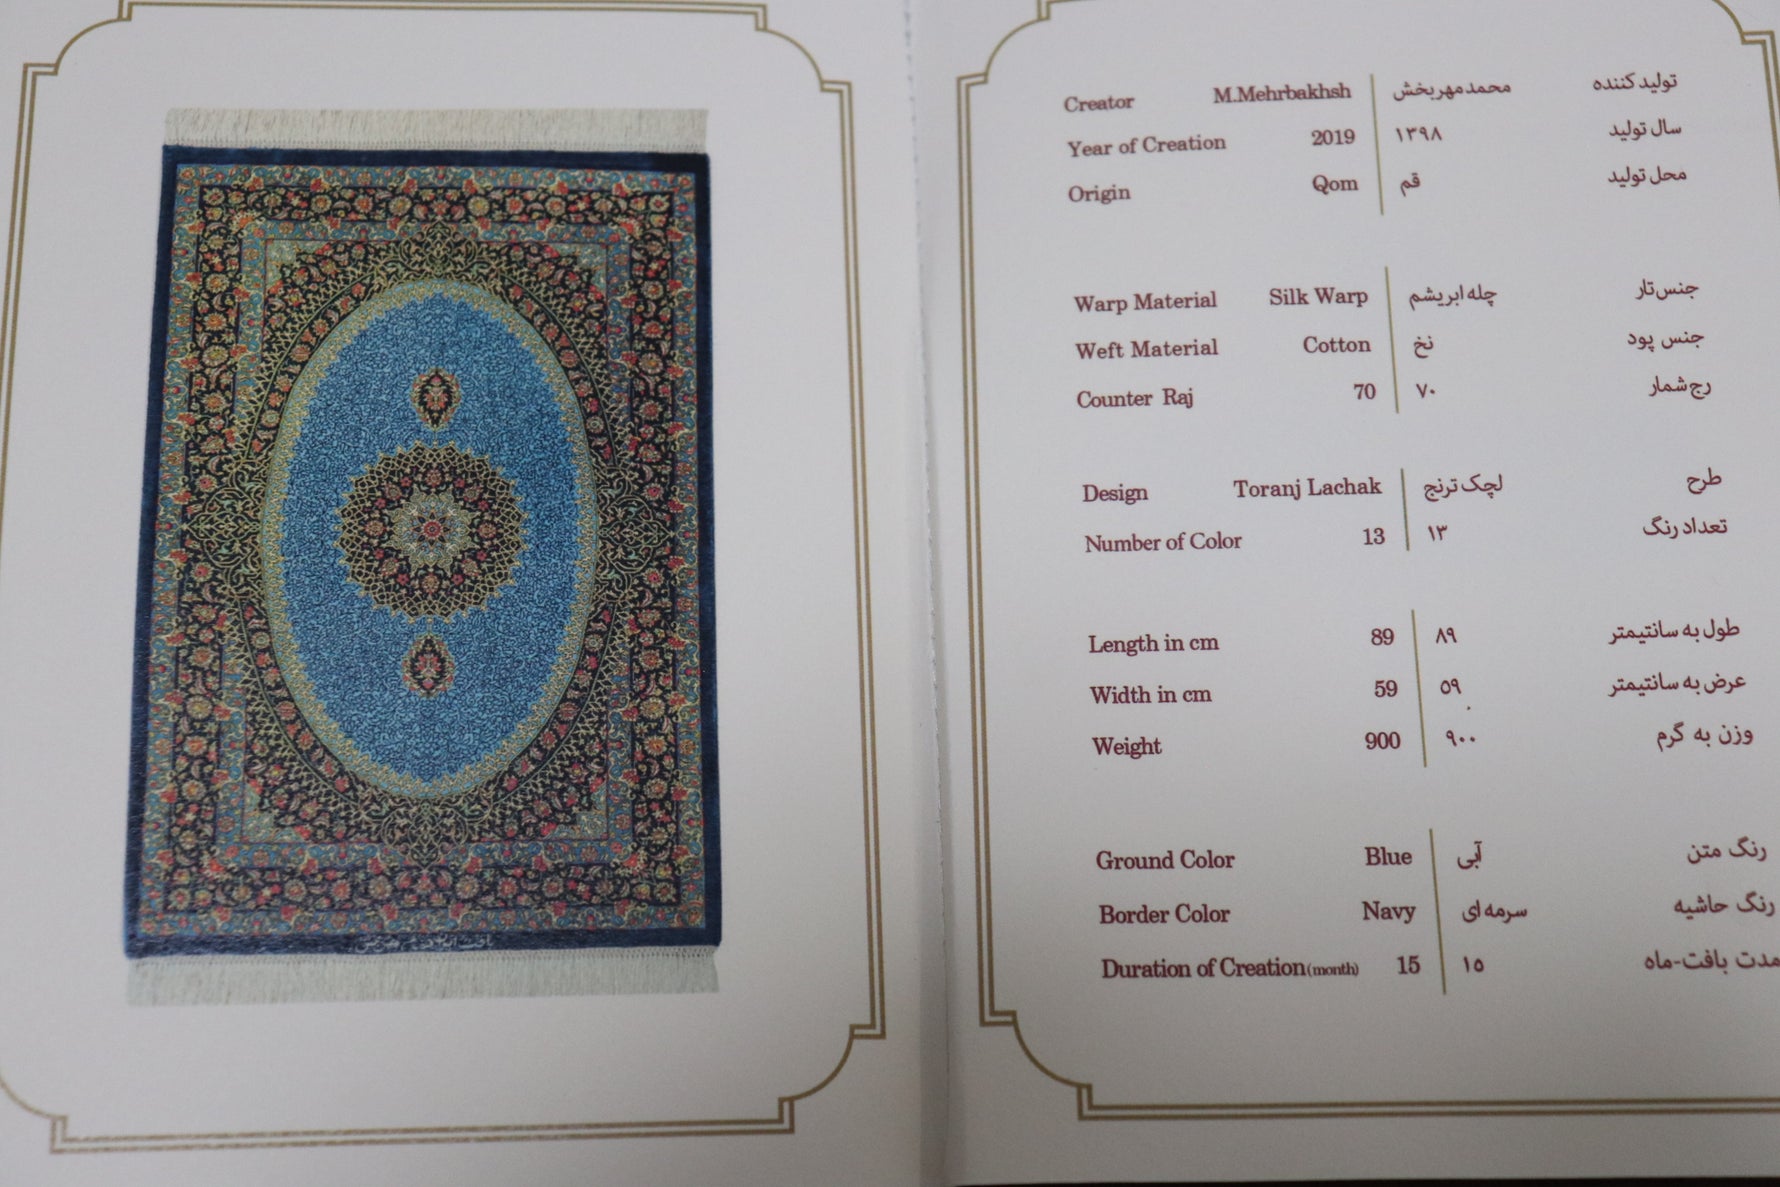 Creator M.Mehrbakhsh محمد مهربخش تولید کننده
Year of Creation 2019 ۱۳۹۸ سال تولید
Origin Qom قم محل تولید
Warp Material Silk Warp چله ابریشم جنس تار
Weft Material Cotton نخ جنس پود
Counter Raj 70 ۷۰ رج شمار
Design Toranj Lachak لچک ترنج طرح
Number of Color 13 ۱۳ تعداد رنگ
Length in cm 89 ۸۹ طول به سانتیمتر
Width in cm 59 ۵۹ عرض به سانتیمتر
Weight 900 ۹۰۰ وزن به گرم
Ground Color Blue آبی رنگ متن
Border Color Navy سرمه ای رنگ حاشیه
Duration of Creation (month) 15 ۱۵ مدت بافت-ماه